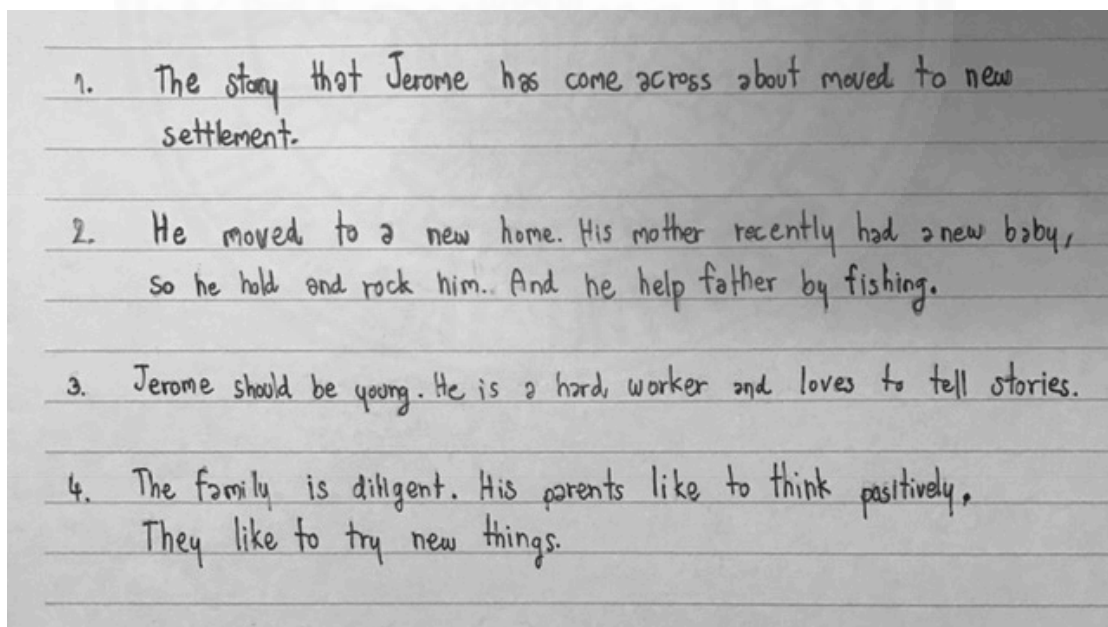 1. The story that Jerome has come across about moved to new
settlement.
2. He moved to a new home. His mother recently had a new baby,
so he hold and rock him.. And he help father by fishing.
3. Jerome should be young. He is a hard worker and loves to tell stories.
4. The family is diligent. His parents like to think positively.
They like to try new things.